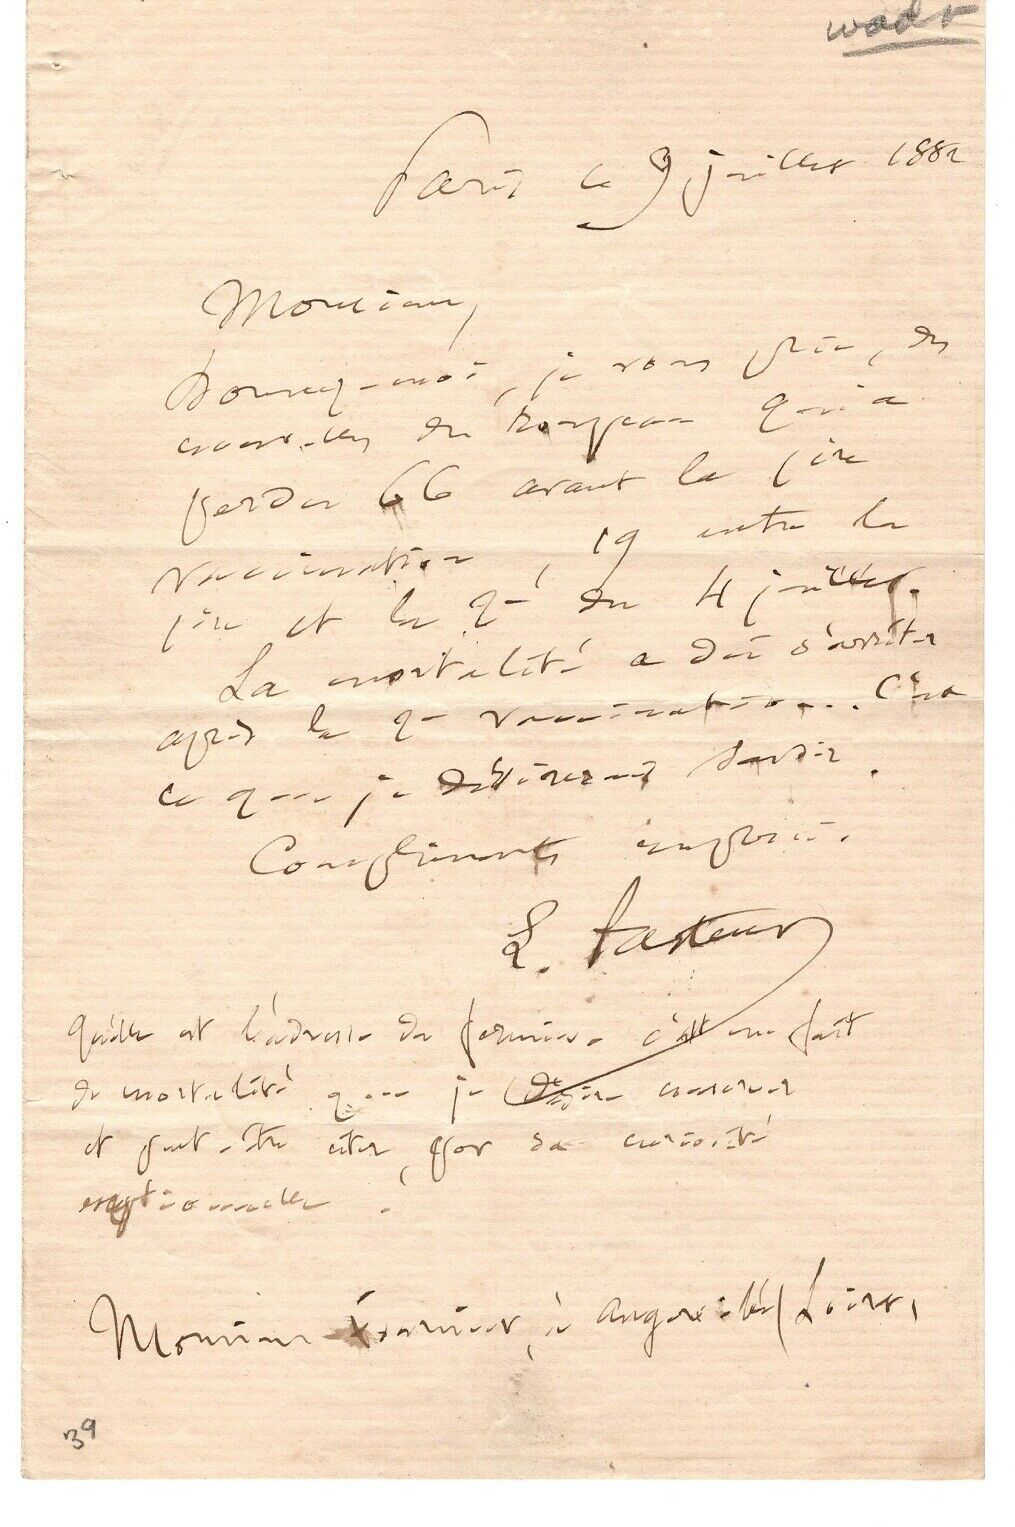 Paris ce 9 juillet 1882
Monsieur,
Donnez-moi, je vous prie, des
nouvelles du troupeau qui a
perdu 66 avant la 1ère
vaccination, 19 entre la
1ère et la 2e du 4 juillet.
La mortalité a dû s'arrêter
après la 2e vaccination. C'est
ce que je désirerais savoir.
Compliments empressés.
L. Pasteur
Quelle est l'adresse du fermier c'est un fait
de mortalité que je désire conserver
et peut-être citer, par sa curiosité
exceptionnelle
Monsieur Fournier, à Angerville (Loiret,
39